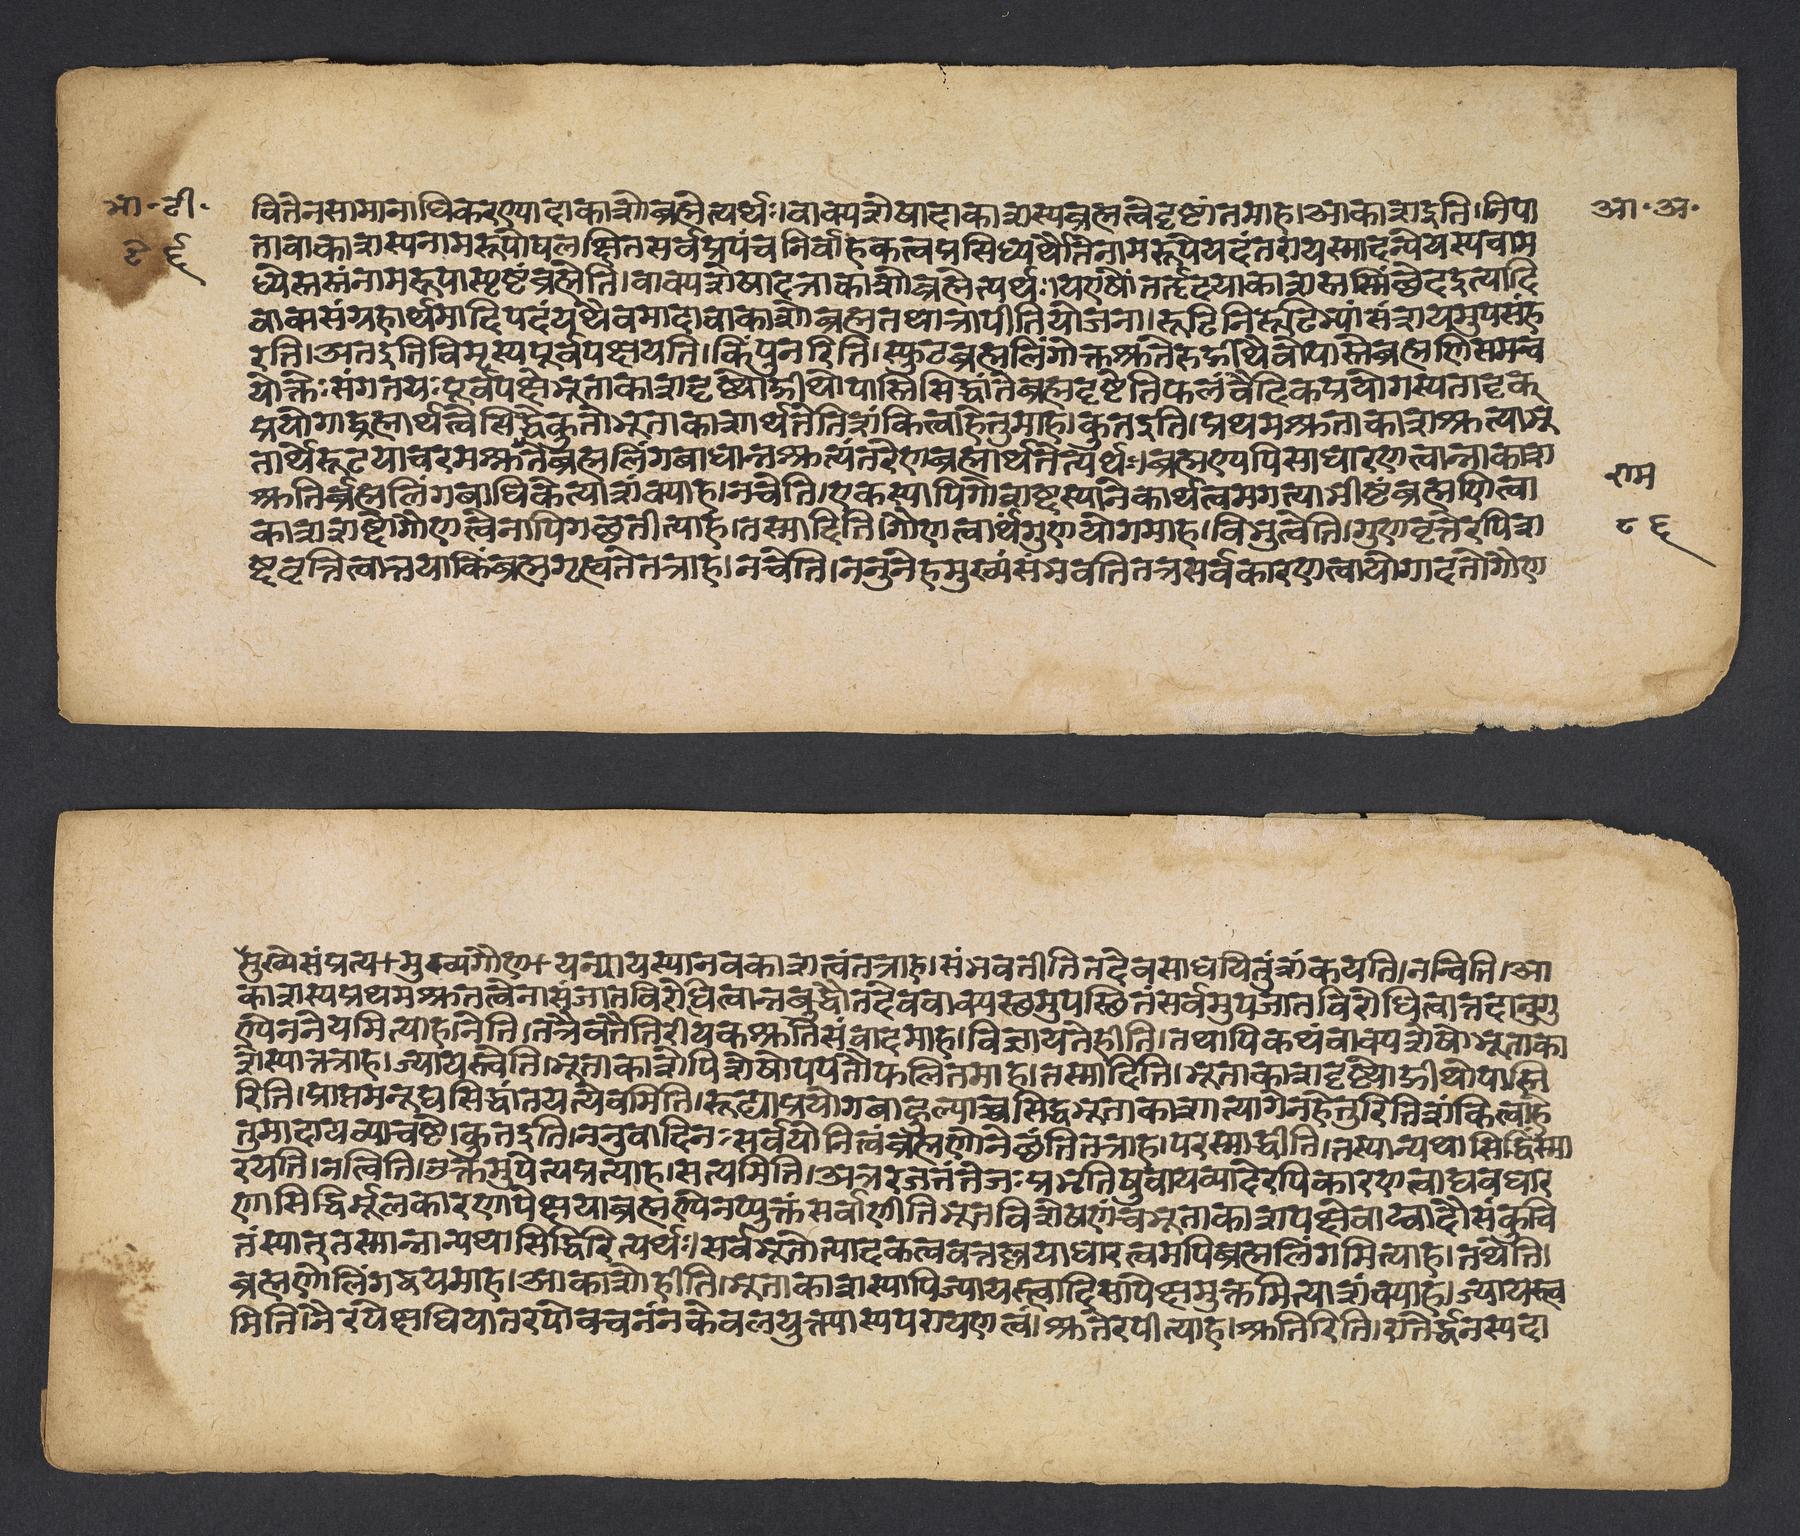 भा॰टी॰
८६
आ॰अ॰
वितेनसामानाधिकरण्यादाकाशोब्रह्मेत्यर्थः।वाक्यशेषादाकाशस्यब्रह्मत्वेदृष्टांतमाह।आकाशइति।निपा
तावाकाशस्यनामरूपोपलक्षितसर्वप्रपंचनिर्वाहकत्वप्रसिध्यर्थौतेनामरूपेयदंतरायस्मादन्येयस्यवाम
ध्येस्तस्तंनामरूपास्पृष्टंब्रह्मेति।वाक्यशेषादत्राकाशोब्रह्मेत्यर्थः।यएषोंतर्हृदयाकाशस्तस्मिंञ्छेदइत्यादि
वाक्यसंग्रहार्थमादिपदंयथैवमादावाकाशोब्रह्मतथात्रापीतियोजना।रूढिनिरूढिभ्यांसंशयमुपसंह
रति।अतइतिविमृस्यपूर्वपक्षयति।किंपुनरिति।स्फुटब्रह्मलिंगोक्तश्रुतेरुद्गीथेवोपास्तेब्रह्मणिसमन्व
योक्तेःसंगतयःपूर्वपक्षेभूताकाशदृष्ट्योद्गीथोपास्तिःसिद्धांतेब्रह्मदृष्टेतिफलंवैदिकप्रयोगस्यतादृक्
प्रयोगाद्ब्रह्मार्थत्वेसिद्धेकुतोभूताकाशार्थतेतिशंकित्वाहेतुमाह।कुतइति।प्रथमश्रुताकाशश्रुत्याभू
तार्थेरूढयाचरमश्रुतेब्रह्मलिंगबाधान्नश्रुत्यंतरेणब्रह्मार्थतेत्यर्थः।ब्रह्मण्यपिसाधारणत्वान्नाकाश
श्रुतिर्ब्रह्मलिंगबाधिकेत्याशंक्याह।नचेति।एकस्यापिगोशब्दस्यानेकार्थत्वमगत्याभीष्टंब्रह्मणित्वा
काशशब्दोगौणत्वेनापिगच्छतीत्याह।तस्मादिति।गौणत्वार्थगुणयोगमाह।विभुत्वेति।गुणवृत्तेरपिश
ब्दवृत्तित्वात्तयाकिंब्रह्मगृह्यतेतत्राह।नचेति।ननुनेहमुख्यंसंभवतितत्रसर्वकारणत्वायोगादतोगौण
राम
८६
मुख्येसंप्रत्ययमुख्यगौणन्यायस्यानवकाशत्वंतत्राह।संभवतीतितदेवसाधयितुंशंकयति।नन्विति।आ
काशस्यप्रथमश्रुतत्वेनासंजातविरोधित्वान्नबुद्धौतदेववाक्यस्थमुपस्थितंसर्वमुपजातविरोधित्वात्तदानुगु
ण्येननेयमित्याह।नेति।तत्रैवतैत्तिरीयकश्रुतिसंवादमाह।विज्ञायतेहीति।तथापिकथंवाक्यशेषोभूताका
शेस्यात्तत्राह।ज्यायस्त्वेति।भूताकाशेपिशेषोपपत्तौफलितमाह।तस्मादिति।भूताकाशदृष्ट्योद्गीथोपास्ति
रिति।प्राप्तमनूद्यसिद्धांतयत्येवमिति।रूढ्याप्रयोगबाहुल्याच्चसिद्धभूताकाशत्यागेनहेतुरितिशंकित्वाहे
तुमादायव्याचष्टे।कुतइति।ननुवादिनःसर्वयोनित्वंब्रह्मणोनेच्छंतितत्राह।परस्माद्धीति।तस्यान्यथासिद्धिंस्मा
रयति।नत्विति।उक्तमुपेत्यप्रत्याह।सत्यमिति।अत्ररजतंतेजःप्रभृतिषुवाय्वादेरपिकारणत्वाद्यवधार
णासिद्धिर्मूलकारणापेक्षयाब्रह्मण्येनप्युक्तंसर्वाणीतिभूतविशेषणंचभूताकाशपक्षेवाय्वादौसंकुचि
तंस्यात्तस्मान्नान्यथासिद्धिरित्यर्थः।सर्वभूतोत्पादकत्ववत्तल्लयाधारत्वमपिब्रह्मलिंगमित्याह।तथेति।
ब्रह्मणोलिंगद्वयमाह।आकाशोहीति।भूताकाशस्यापिज्यायस्त्वादिसापेक्षमुक्तमित्याशंक्याह।ज्यायस्त्व
मितिनिरपेक्षधियातरपोवचनंनकेवलयुक्त्यास्यपरायणत्वं।श्रुतेरपीत्याह।श्रुतिरिति।रातेर्द्धनस्यदा